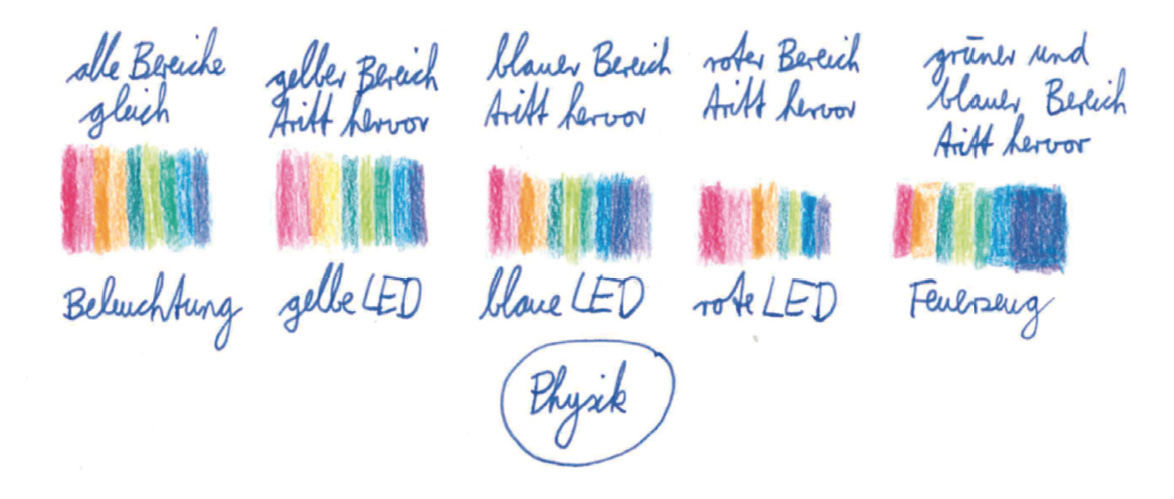 alle Bereiche
gleich
gelber Bereich
tritt hervor
blauer Bereich
tritt hervor
roter Bereich
tritt hervor
grüner und
blauer Bereich
tritt hervor
Beleuchtung
gelbe LED
blaue LED
rote LED
Feuerzeug
Physik